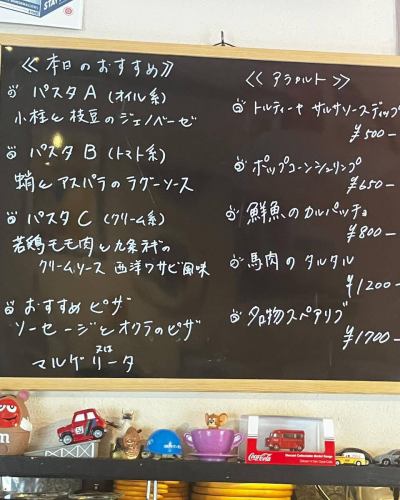 《本日のおすすめ》
パスタA (オイル系)
小柱と枝豆のジェノベーゼ
パスタB (トマト系)
蛸とアスパラのラグーソース
パスタC (クリーム系)
若鶏モモ肉と九条ネギの
クリームソース 西洋ワサビ風味
おすすめピザ
ソーセージとオクラのピザ
又は
マルゲリータ
《アラカルト》
トルティーヤ サルサソースディップ
¥500-
ポップコーンシュリンプ
¥650-
鮮魚のカルパッチョ
¥800-
馬肉のタルタル
¥1200-
名物スペアリブ
¥1700-
Coca-Cola